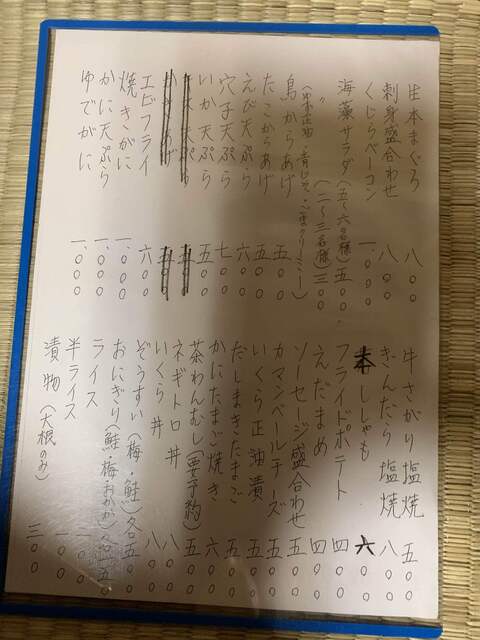 生本まぐろ 八〇〇
刺身盛合わせ 八〇〇
くじらベーコン 一、〇〇〇
海藻サラダ(五〜六名様) 五〇〇
〃 (二〜三名様) 三〇〇
(中華正油・青じそ・ごまクリーミー)
鳥からあげ 五〇〇
たこからあげ 五〇〇
えび天ぷら 六〇〇
穴子天ぷら 七〇〇
いか天ぷら 五〇〇
エビフライ 六〇〇
焼きがに 一、〇〇〇
かに天ぷら 一、〇〇〇
ゆでがに 一、〇〇〇
牛さがり塩焼 五〇〇
きんだら塩焼 八〇〇
本ししゃも 六〇〇
フライドポテト 四〇〇
えだまめ 四〇〇
ソーセージ盛合わせ 五〇〇
カマンベールチーズ 五〇〇
いくら正油漬 五〇〇
だしまきたまご 五〇〇
かにたまご焼き 六〇〇
茶わんむし(要予約) 五〇〇
ネギトロ丼 八〇〇
いくら丼 八〇〇
ぞうすい(梅・鮭)各五〇〇
おにぎり(鮭・梅おかか)各一五〇
ライス
半ライス 一〇〇
漬物(大根のみ) 三〇〇